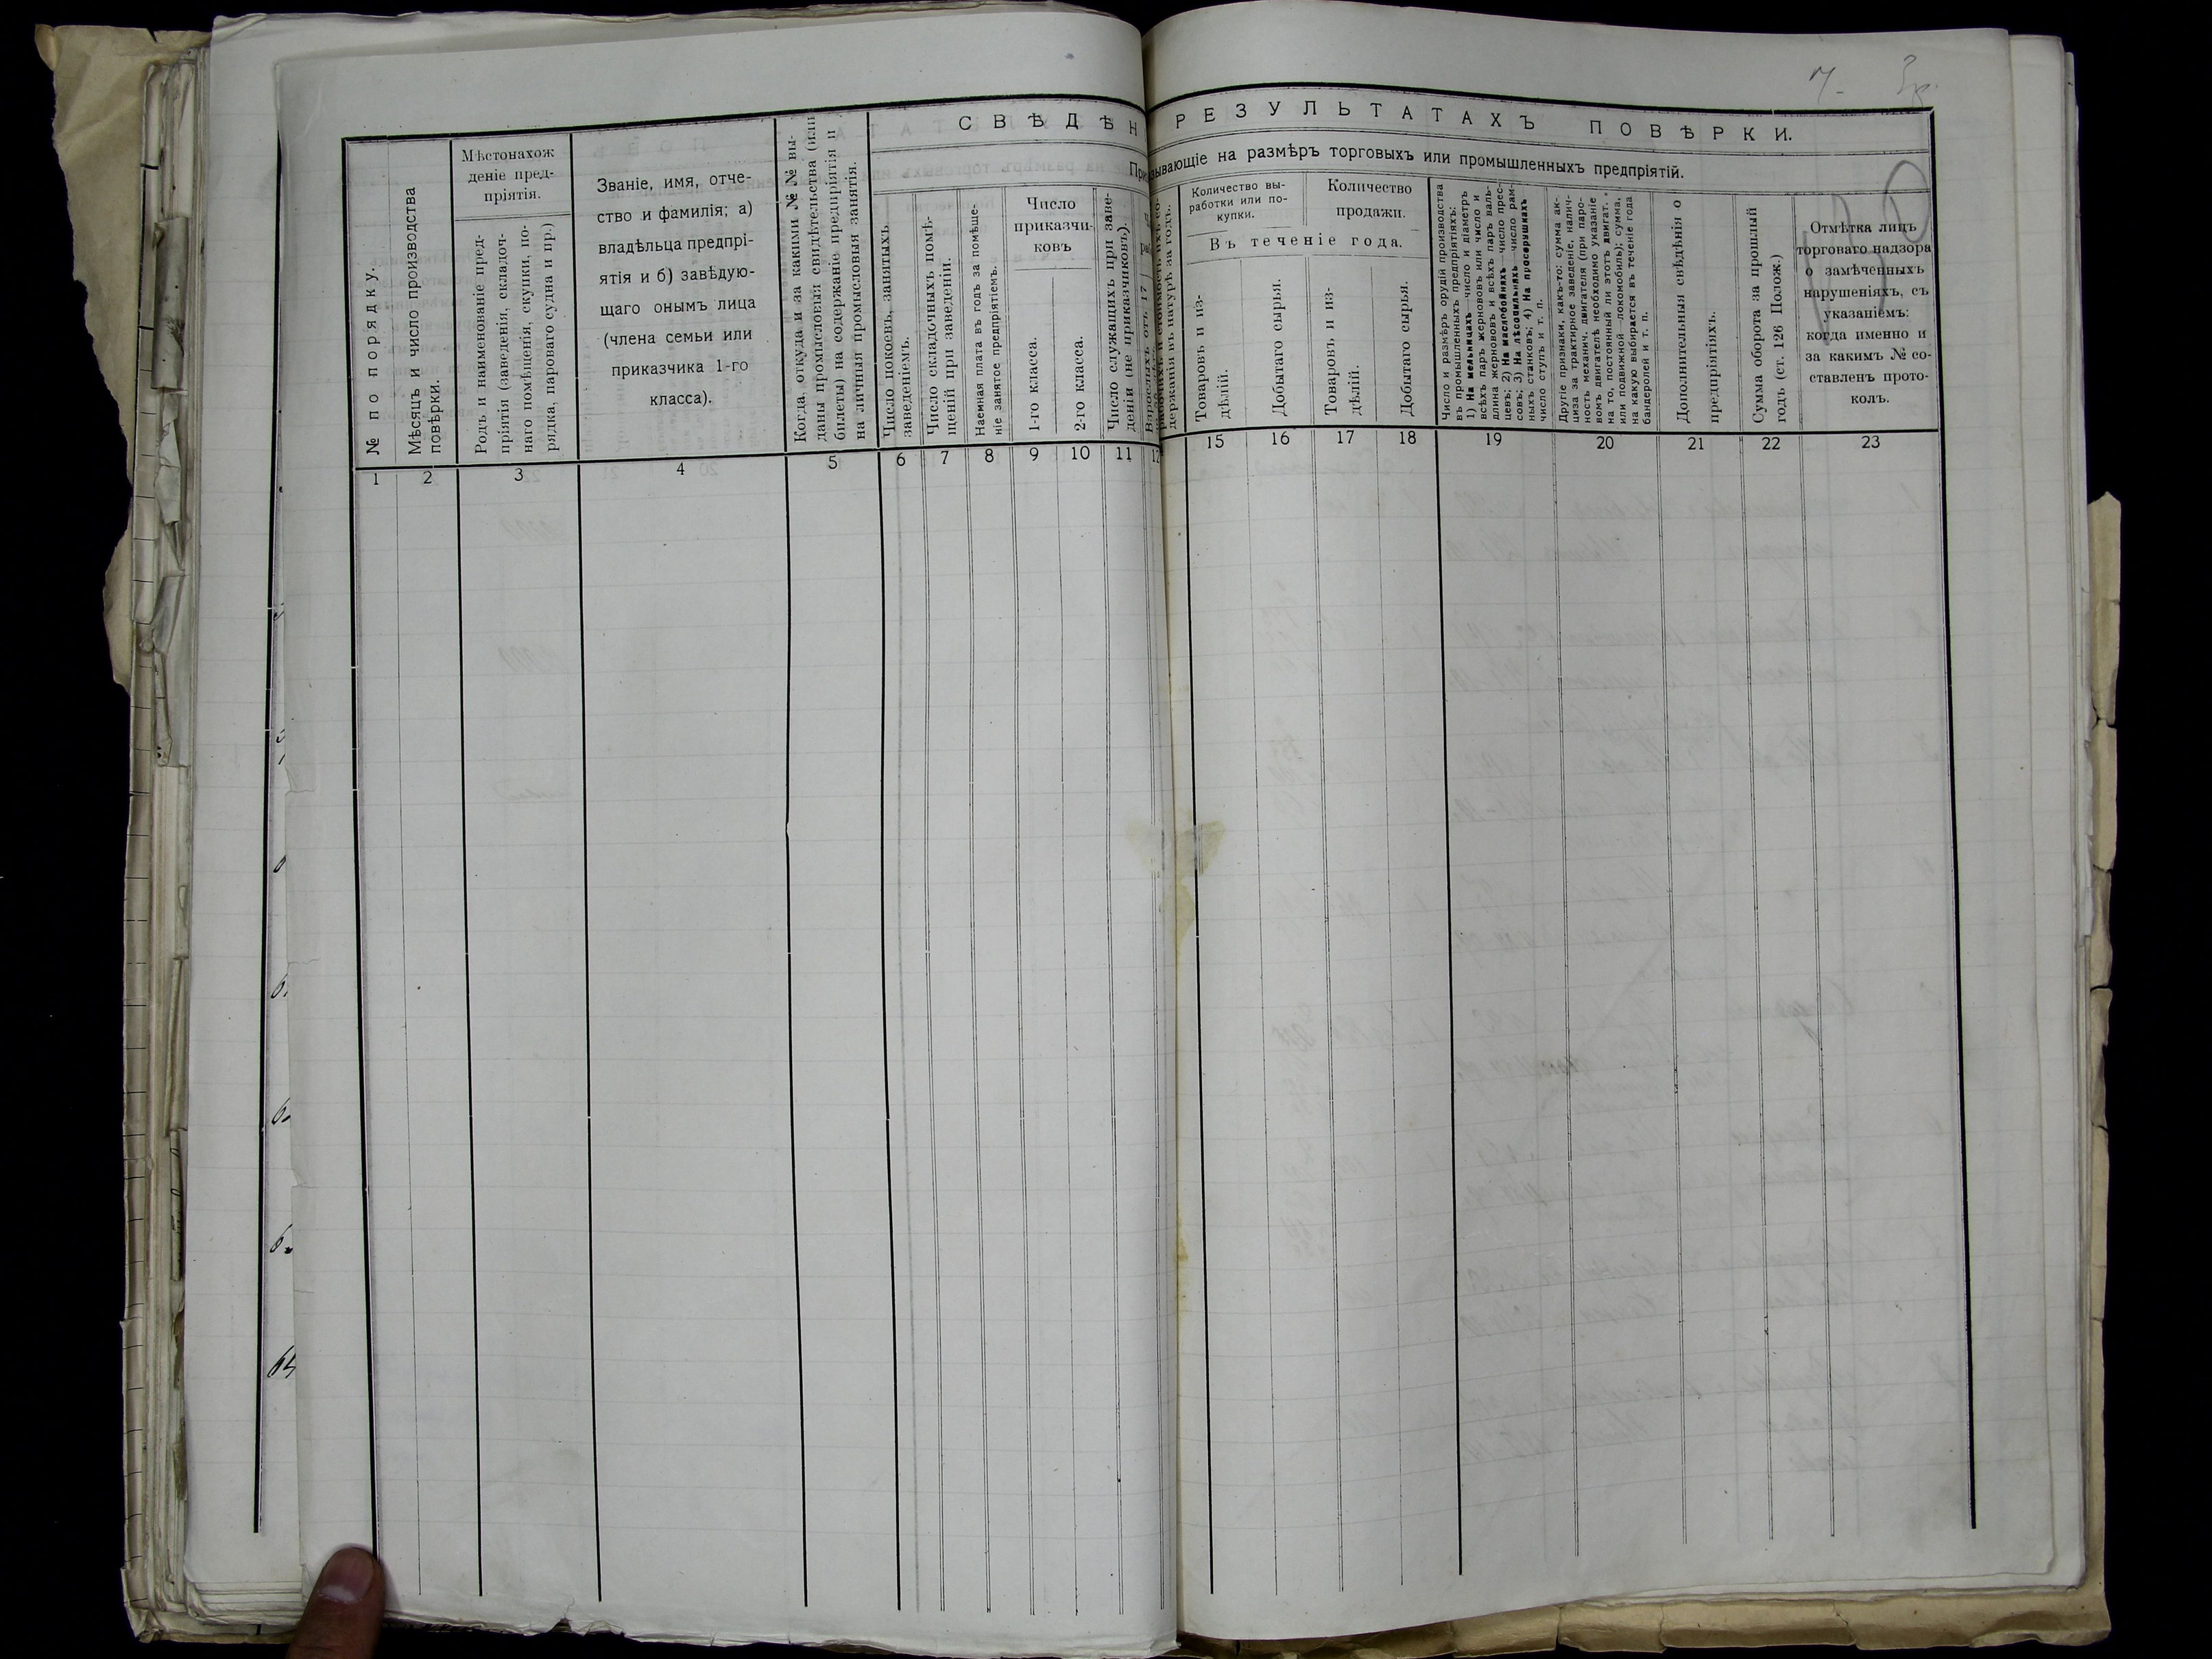 СВѢДѢН
РЕЗУЛЬТАТАХЪ ПОВѢРКИ.
зывающіе на размѣръ торговыхъ или промышленныхъ предпріятій.
№ по порядку.
Мѣсяцъ и число производства
повѣрки.
Мѣстонахож
деніе пред-
пріятія.
Родъ и наименованіе пред-
пріятія (заведенія, складоч-
наго помѣщенія, скупки, по-
рядка, парового судна и пр.)
Званіе, имя, отче-
ство и фамилія; а)
владѣльца предпрі-
ятія и б) завѣдую-
щаго онымъ лица
(члена семьи или
приказчика 1-го
класса).
Когда, откуда и за какими №№ вы-
даны промысловыя свидѣтельства (или
билеты) на содержаніе предпріятія и
на личныя промысловыя занятія.
Число покоевъ, занятыхъ
заведеніемъ.
Число складочныхъ помѣ-
щеній при заведеніи.
Наемная плата въ годъ за помѣще-
ніе занятое предпріятіемъ.
Число
приказчи-
ковъ
1-го класса.
2-го класса.
Число служащихъ при заве-
деніи (не приказчиковъ).
Взрослыхъ отъ 17
держанія въ натурѣ за годъ.
Количество вы-
работки или по-
купки.
Количество
продажи.
Въ теченіе года.
Товаровъ и из-
дѣлій.
Добытаго сырья.
Товаровъ и из-
дѣлій.
Добытаго сырья.
Число и размѣръ орудій производства
въ промышленныхъ предпріятіяхъ:
1) На мельницахъ—число и діаметръ
всѣхъ паръ жернововъ или число и
длина жернововъ и всѣхъ паръ валь-
цевъ; 2) На маслобойняхъ—число прес-
совъ; 3) На лѣсопильняхъ—число рам-
ныхъ станковъ; 4) На просорушкахъ
число ступъ и т. п.
Другіе признаки, какъ-то: сумма ак-
циза за трактирное заведеніе, налич-
ность механич. двигателя (при паро-
вомъ двигателѣ необходимо указаніе
на то, постоянный ли этотъ двигат.
или подвижной—локомобиль); сумма,
на какую выбирается въ теченіе года
бандеролей и т. п.
Дополнительныя свѣдѣнія о
предпріятіяхъ.
Сумма оборота за прошлый
годъ (ст. 126 Полож.)
Отмѣтка лицъ
торговаго надзора
о замѣченныхъ
нарушеніяхъ, съ
указаніемъ:
когда именно и
за какимъ № со-
ставленъ прото-
колъ.
1 2 3 4 5 6 7 8 9 10 11 12 15 16 17 18 19 20 21 22 23